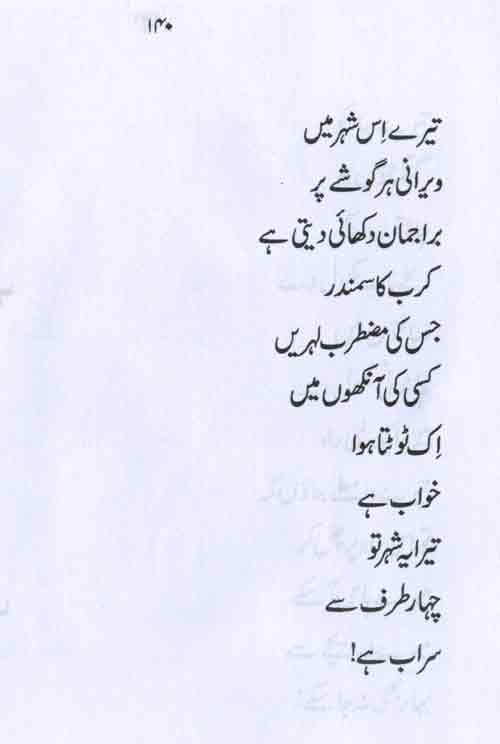 ۱۴۰
تیرے اِس شہر میں
ویرانی ہر گوشے پر
براجمان دکھائی دیتی ہے
کرب کا سمندر
جس کی مضطرب لہریں
کسی کی آنکھوں میں
اِک ٹوٹتا ہوا
خواب ہے
تیرا یہ شہر تو
چہار طرف سے
سراب ہے!